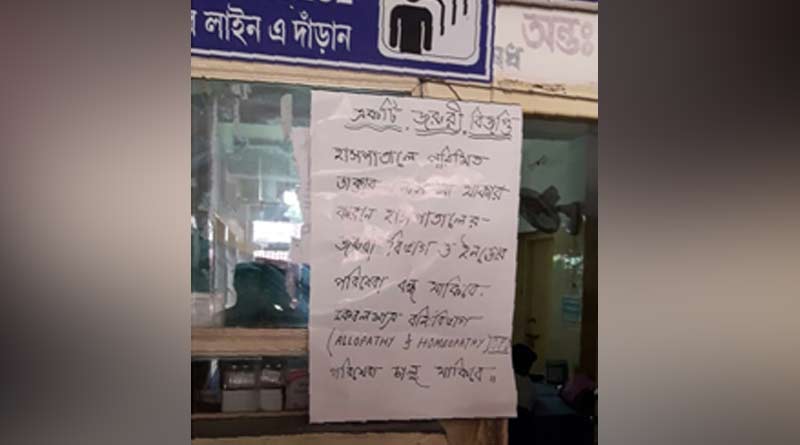 লাইন এ দাঁড়ান
অন্তঃ
একটি জরুরী বিজ্ঞপ্তি
হাসপাতালে পরিমিত
ডাক্তার না থাকার
কারনে হাসপাতালের
জরুরী বিভাগ ও ইনডোর
পরিষেবা বন্ধ থাকিবে।
কেবলমাত্র বর্হিবিভাগ
(ALLOPATHY & HOMEOPATHY)
পরিষেবা চালু থাকিবে॥